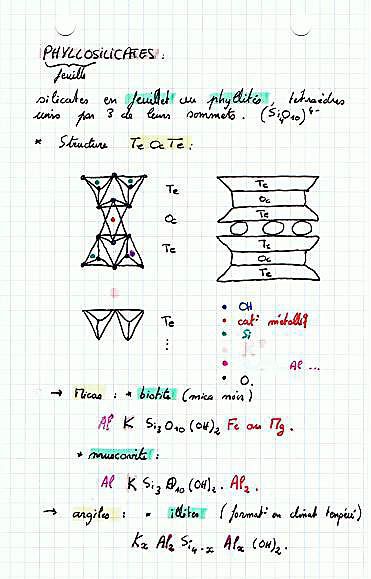 PHYLLOSILICATES :
feuille
silicates en feuillet ou phyllités, tétraèdres
unis par 3 de leurs sommets. (Si4O10)4-
* Structure TeOcTe :
Te
Te
Oc
Oc
Te
Te
Te
Oc
Te
Te
⋮
• OH
• cat° métalliq
• Si
• Al ...
• O.
→ Micas : * biotite (mica noir)
Al K Si3O10(OH)2 Fe ou Mg.
* muscovite :
Al K Si3O10(OH)2. Al2.
→ argiles : * illites (format° en climat tempéré)
Kx Al2 Si4-x Alx (OH)2.